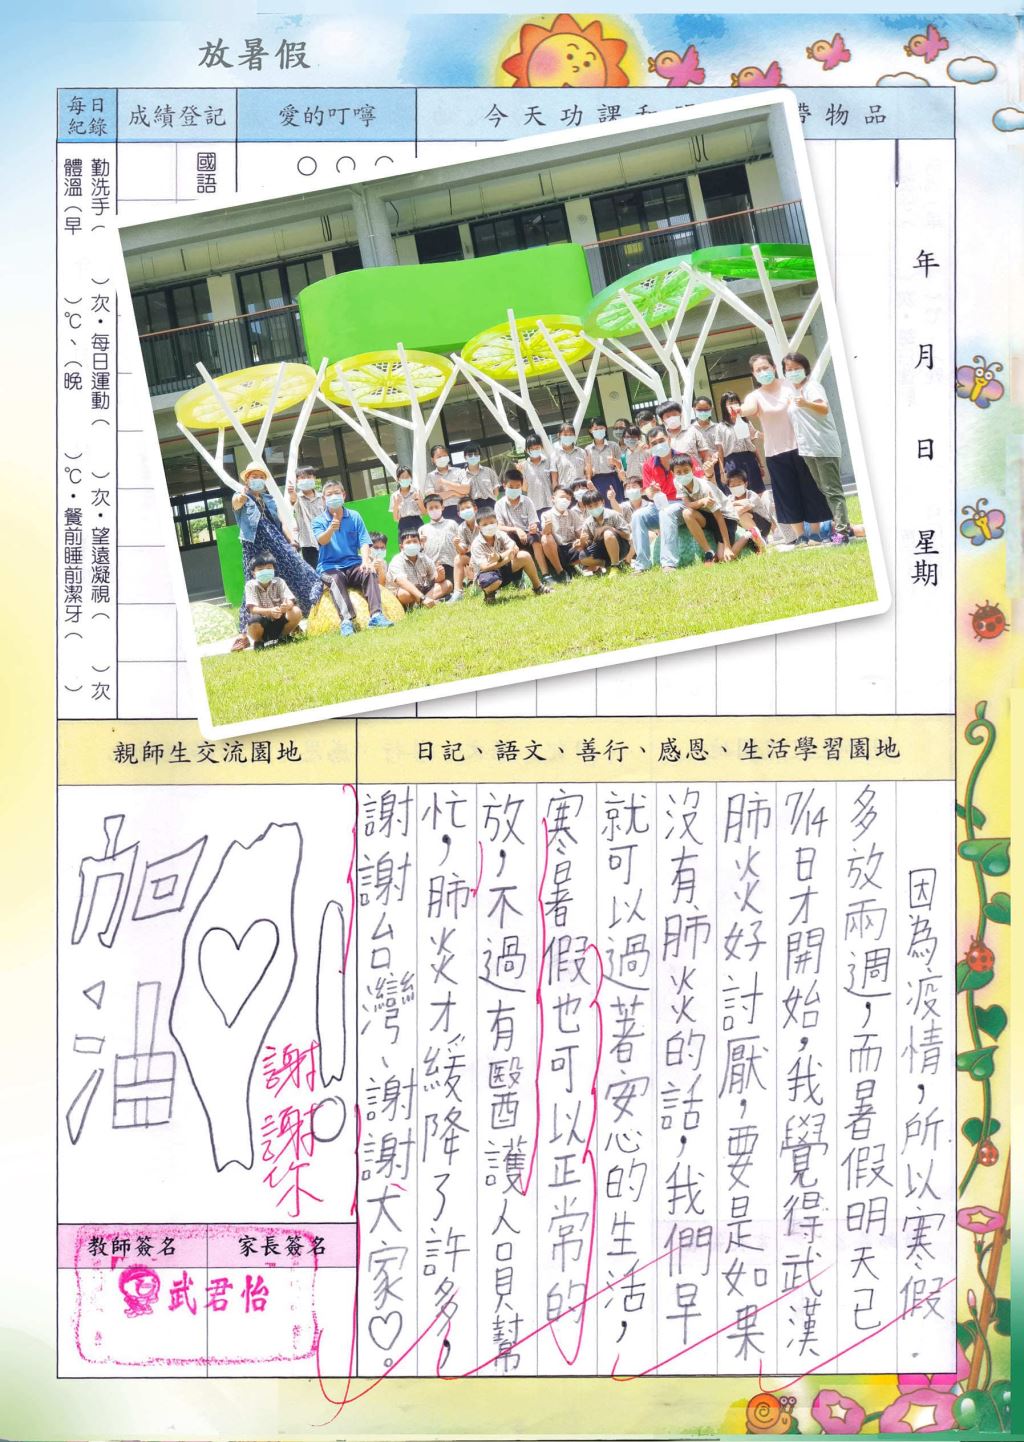 放暑假
每日紀錄
成績登記
愛的叮嚀
今天功課和
帶物品
國語
年 月 日 星期
勤洗手( )次·每日運動( )次·望遠凝視( )次
體溫(早 )℃、(晚 )℃·餐前睡前潔牙( )
親師生交流園地
日記、語文、善行、感恩、生活學習園地
因為疫情,所以寒假
多放兩週,而暑假明天已
7/14日才開始,我覺得武漢
肺炎好討厭,要是如果
沒有肺炎的話,我們早
就可以過著安心的生活,
寒暑假也可以正常的
放,不過有醫護人員幫
忙,肺炎才緩降了許多,
謝謝台灣、謝謝大家♡。
加油
台灣
謝謝你
教師簽名
家長簽名
武君怡